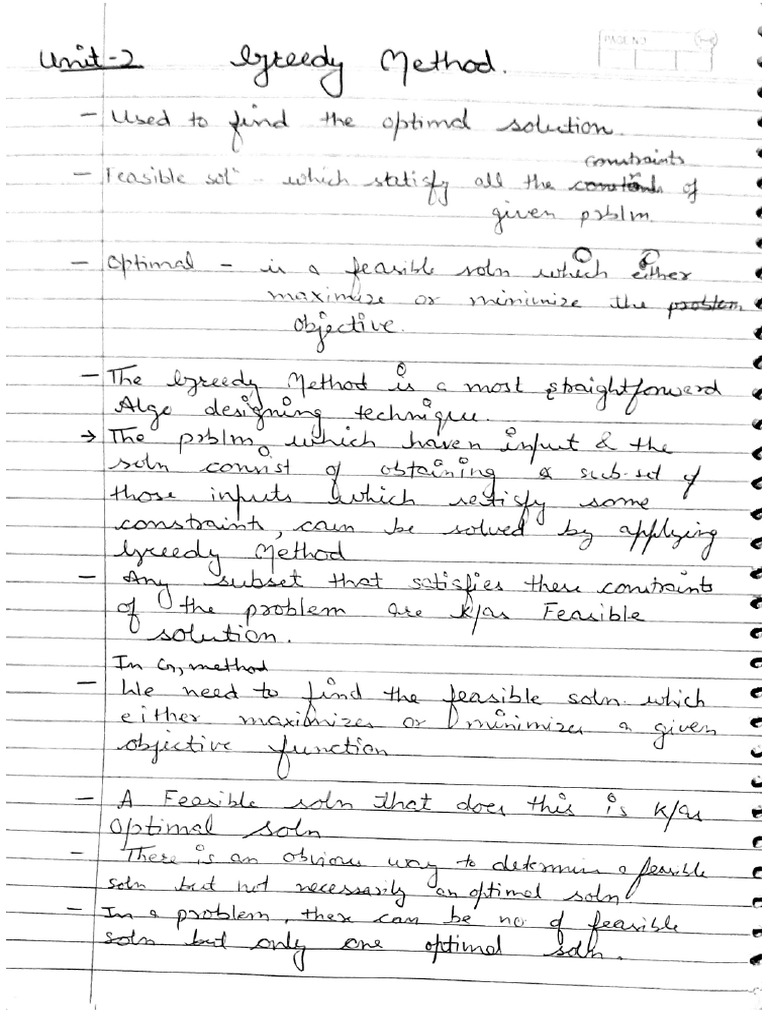 PAGE NO
Unit-2 Greedy Method.
- Used to find the optimal solution.
constraints
- Feasible solⁿ - which statisfy all the of
given prblm.
- Optimal - is a feasible soln which either
maximize or minimize the problem
objective.
- The Greedy Method is a most straightforward
Algo designing technique.
→ The prblm which have n input & the
soln consist of obtaining a sub-set of
those inputs which satisfy some
constraints, can be solved by applying
Greedy Method
- Any subset that satisfies these constraints
of the problem are k/as Feasible
solution.
In G, method
- We need to find the feasible soln. which
either maximizes or minimizes a given
objective function
- A Feasible soln that does this is k/as
Optimal soln
- There is an obvious way to determin a feasible
soln but not necessarily an optimal soln
- In a problem, there can be no of feasible
soln but only one optimal soln.